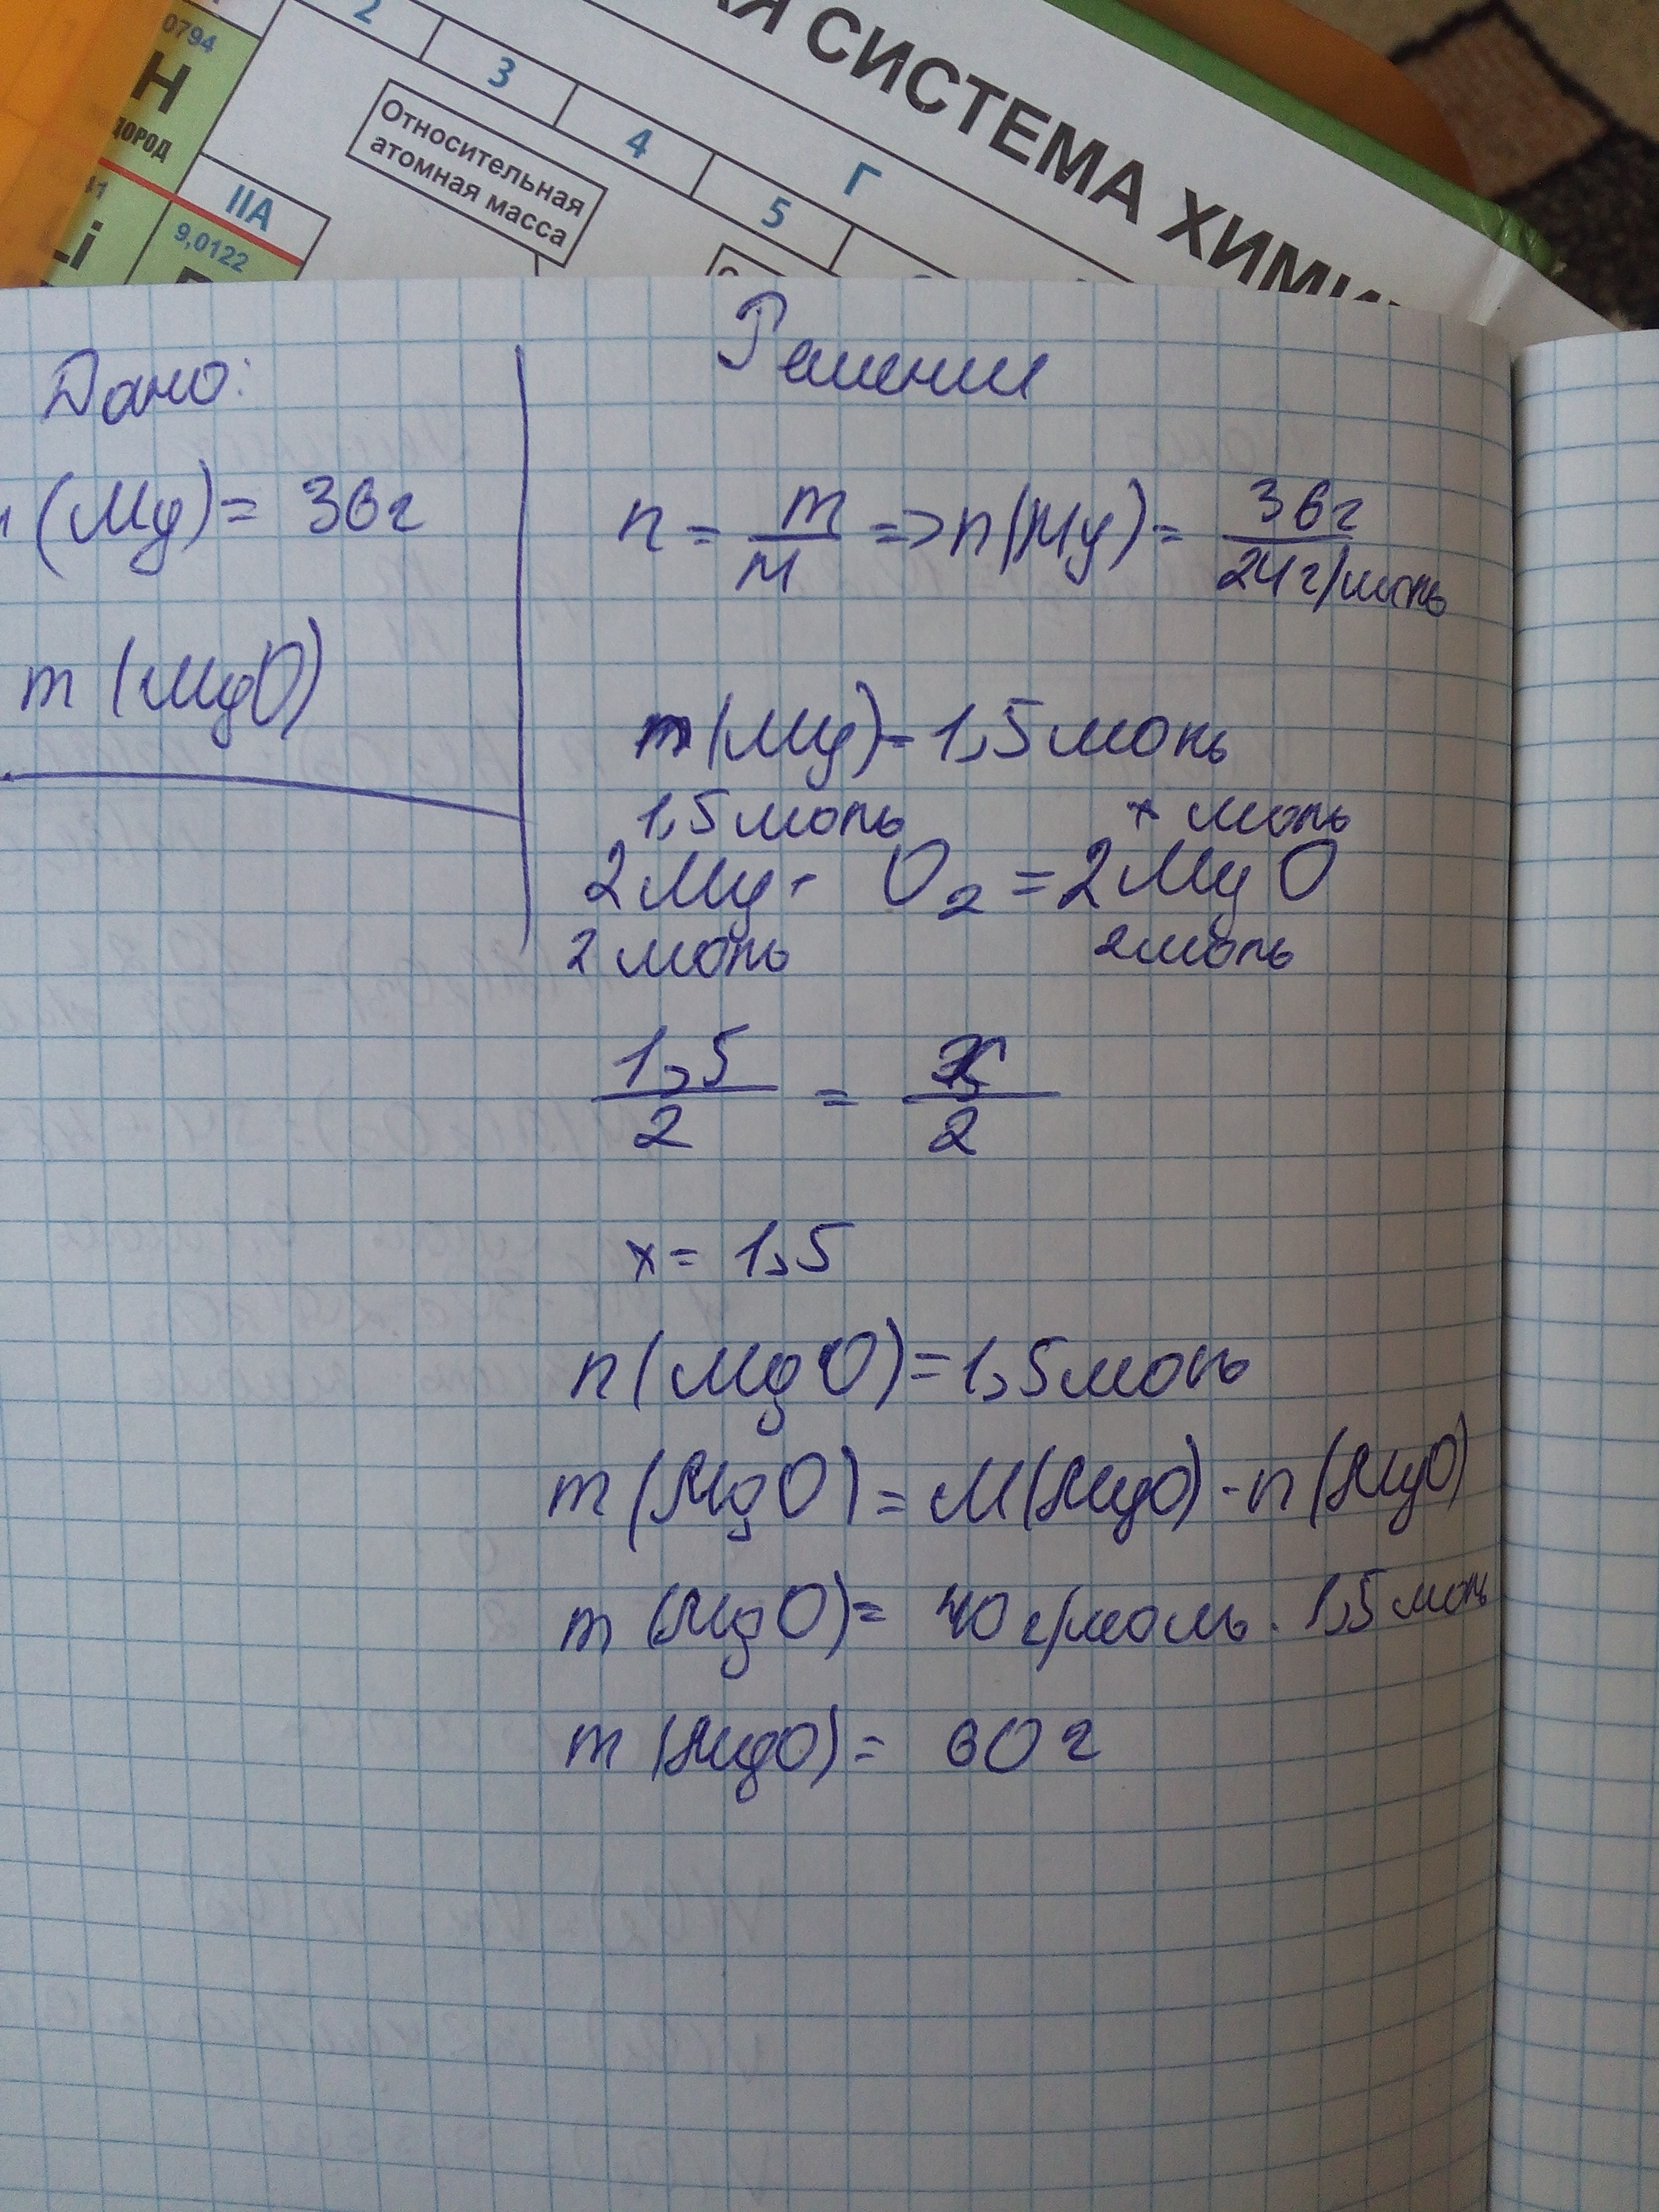 Я СИСТЕМА ХИМИ
0794
Н
ДОРОД
2
3
4
5
Г
Относительная
атомная масса
IIA
9,0122
41
Li
Дано:
(Mg) = 36г
m (MgO)
Решение
n = m/M => n(Mg) = 36г/24г/моль
n(Mg) = 1,5моль
1,5моль x моль
2Mg + O2 = 2MgO
2моль 2моль
1,5/2 = x/2
x = 1,5
n(MgO) = 1,5моль
m(MgO) = M(MgO) · n(MgO)
m(MgO) = 40г/моль · 1,5моль
m(MgO) = 60г